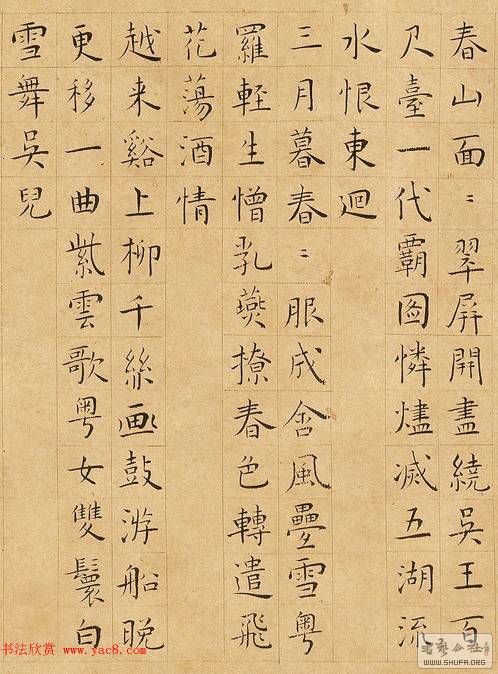 春山面〻翠屏開盡繞吳王百
尺臺一代覇圖憐燼滅五湖流
水恨東迴
三月暮春〻服成含風疊雪粤
羅輕生憎乳燕撩春色轉遣飛
花蕩酒情
越来谿上柳千絲画鼓游船晚
更移一曲紫雲歌粤女雙鬟白
雪舞吳兒
书法欣赏
www.yac8.com
WWW.SHUFA.ORG